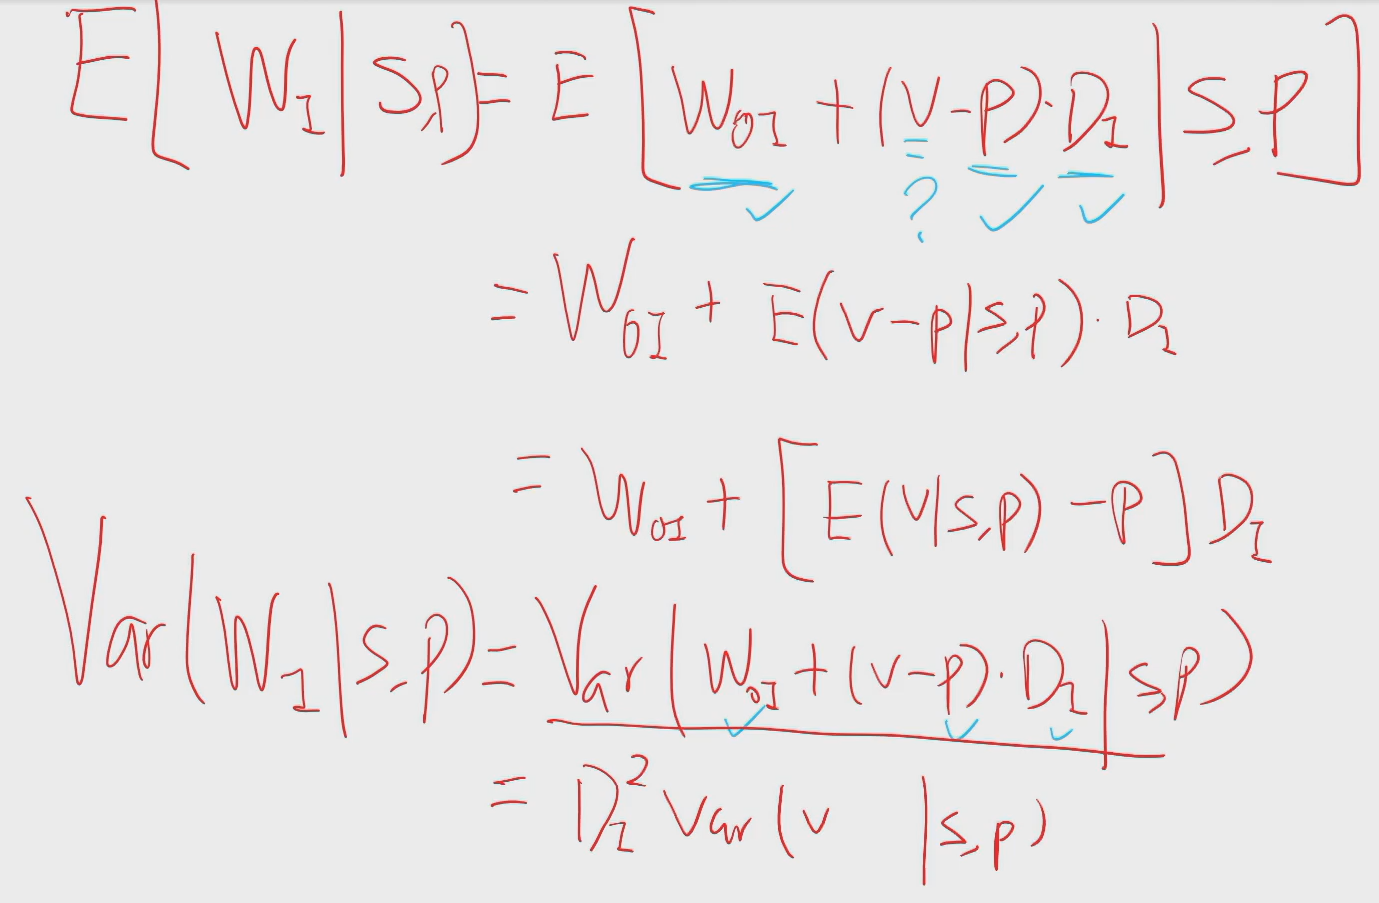 E[W_I|S,P] = E[W_{0I} + (V-P)·D_I|S,P]
?
= W_{0I} + E(V-P|S,P)·D_I
= W_{0I} + [E(V|S,P)-P]D_I
Var(W_I|S,P) = Var(W_{0I} + (V-P)·D_I|S,P)
= D_I^2 Var(V |S,P)